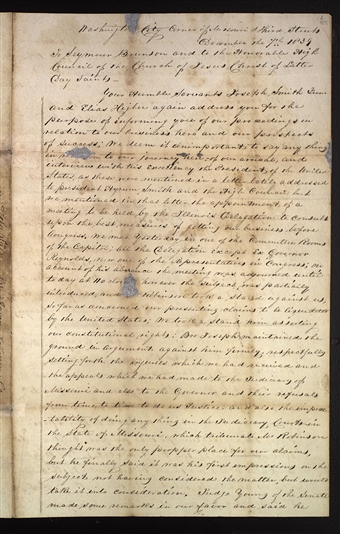 Washington City Corner of Missouri & third Streets
December the 7th 1839
To Seymour Brunson and to the Honorable High
Council of the Church of Jesus Christ of Latter
Day Saints—
Your Humble Servants Joseph Smith Jun
and Elias Higbee again address you for the
purpose of informing you of our proceedings in
relation to our business here and our prospects
of success; We deem it unimportant to say any thing
in to our journey here, of our arrival, and
interview with his Excellency the President of the United
States, as these were mentioned in a letter lately addressed
to president Hyrum Smith and the High Council but
we mentioned in that letter the appointment of a
meeting to be held by the Illinois Delegation to consult
upon the best measures of getting our business before
Congress; We met yesterday in one of the Committee Rooms
of the Capitol; all the Delegation except Ex Governor
Reynolds, now one of the Representatives in Congress, on
account of his absence the meeting was adjourned until
to day at the subject was partially
introduced, and Robinson took a stand against us,
so far as concerned our presenting claims to be liquidated
by the United States. We took a stand asserting
our constitutional rights. Bro Joseph maintained the
ground in argument against him firmly & respectfully
setting forth the injuries which we had received and
the appeals which we had made to the Judiciary of
Missouri and also to the Governor and their refusals
from time to time to do us Justice; and also the
of doing any thing in the Judiciary Courts in
the State of Missouri, which tribunals Mr Robinson
thought was the only propper place for our claims,
but he finally said it was his first impressions on the
subject not having considered the matter, but would
take it into consideration. Judge Young of the Senate
made some remarks in our favor and said he